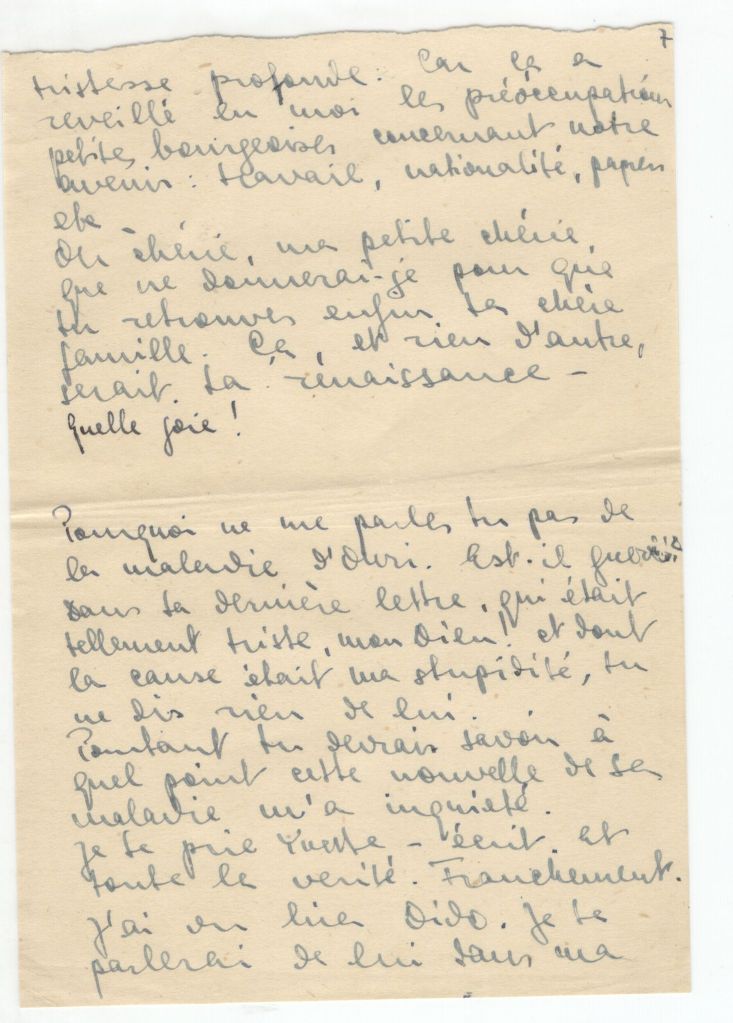 7
tristesse profonde. Car ça a
reveillé en moi les préoccupations
petites bourgeoises concernant notre
avenir: travail, nationalité, papiers
etc
Oh chérie, ma petite chérie,
que ne donnerai-je pour que
tu retrouves enfin ta chère
famille. Ça, et rien d'autre,
serait ta rénaissance –
Quelle joie!
Pourquoi ne me parles tu pas de
la maladie d'Ouri. Est-il gueri?
Dans ta dernière lettre, qui était
tellement triste, mon Dieu! et dont
la cause était ma stupidité, tu
ne dis rien de lui.
Pourtant tu devrais savoir à
quel point cette nouvelle de sa
maladie m'a inquieté.
Je te prie Yvette – écrit. et
toute la verité. Franchement.
J'ai vu hier Dido. Je te
parlerai de lui dans ma